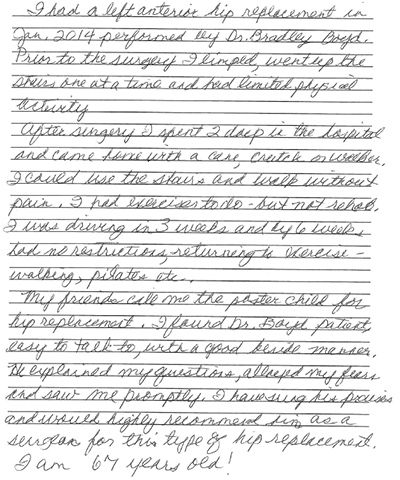 I had a left anterior hip replacement in
Jan. 2014 performed by Dr. Bradley Boyd.
Prior to the surgery I limped, went up the
stairs one at a time and had limited physical
activity
After surgery I spent 2 days in the hospital
and came home with a cane, crutch or walker.
I could use the stairs and walk without
pain. I had exercises to do - but not rehab.
I was driving in 3 weeks and by 6 weeks
had no restrictions, returning to exercise -
walking, pilates etc..
My friends call me the poster child for
hip replacement. I found Dr. Boyd patient,
easy to talk to, with a good beside manner.
He explained my questions, allayed my fears
and saw me promptly. I have sung his praises
and would highly recommend him as a
surgeon for this type of hip replacement.
I am 67 years old!